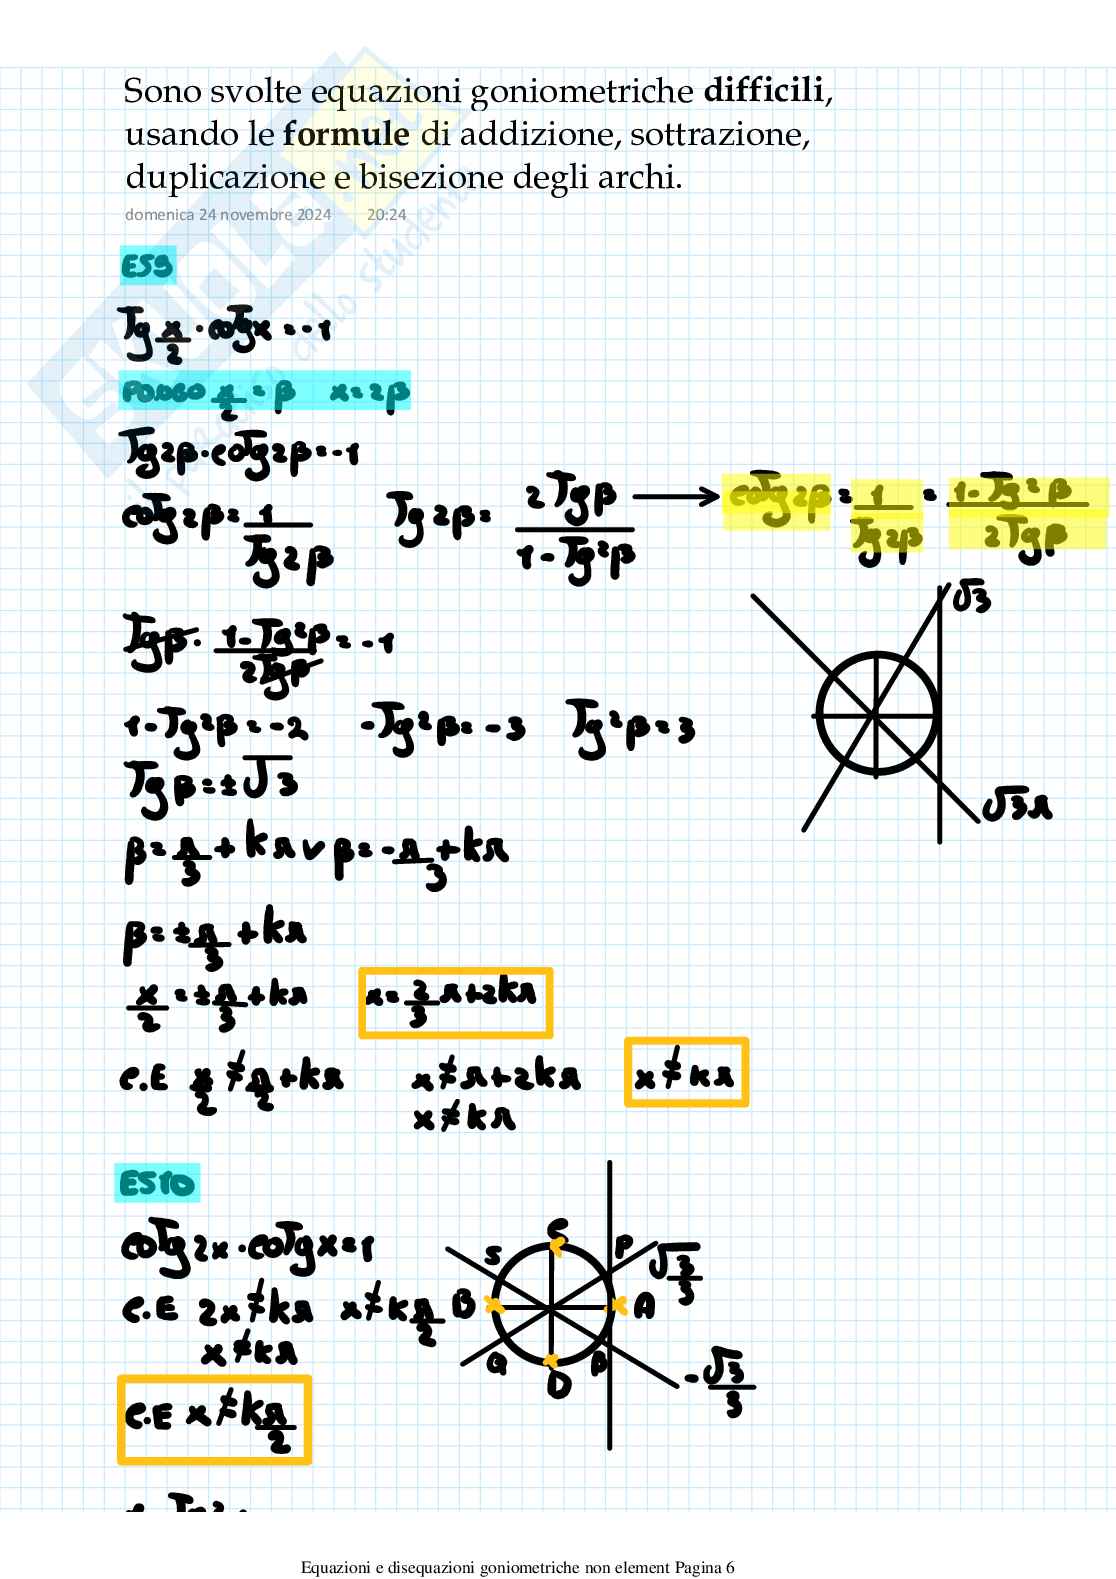 Sono svolte equazioni goniometriche difficili,
usando le formule di addizione, sottrazione,
duplicazione e bisezione degli archi.
domenica 24 novembre 2024 20:24
ES9
Tg x/2 · coTgx = -1
PONGO x/2 = β x = 2β
Tg2β · coTg2β = -1
coTg2β = 1/Tg2β Tg2β = 2Tgβ/1-Tg²β → coTg2β = 1/Tg2β = 1-Tg²β/2Tgβ
Tgβ · 1-Tg²β/2Tgβ = -1
√3
1-Tg²β = -2 -Tg²β = -3 Tg²β = 3
Tgβ = ±√3
√3π
β = π/3 + kπ v β = -π/3 + kπ
β = ±π/3 + kπ
x/2 = ±π/3 + kπ x = 2/3π + 2kπ
C.E x/2 ≠ π/2 + kπ x ≠ π + 2kπ x ≠ kπ
x ≠ kπ
ES10
coTg2x · coTgx = 1
C S P √3/3
C.E 2x ≠ kπ x ≠ kπ/2 B A
x ≠ kπ
Q D β -√3/3
C.E x ≠ kπ/2
Equazioni e disequazioni goniometriche non element Pagina 6